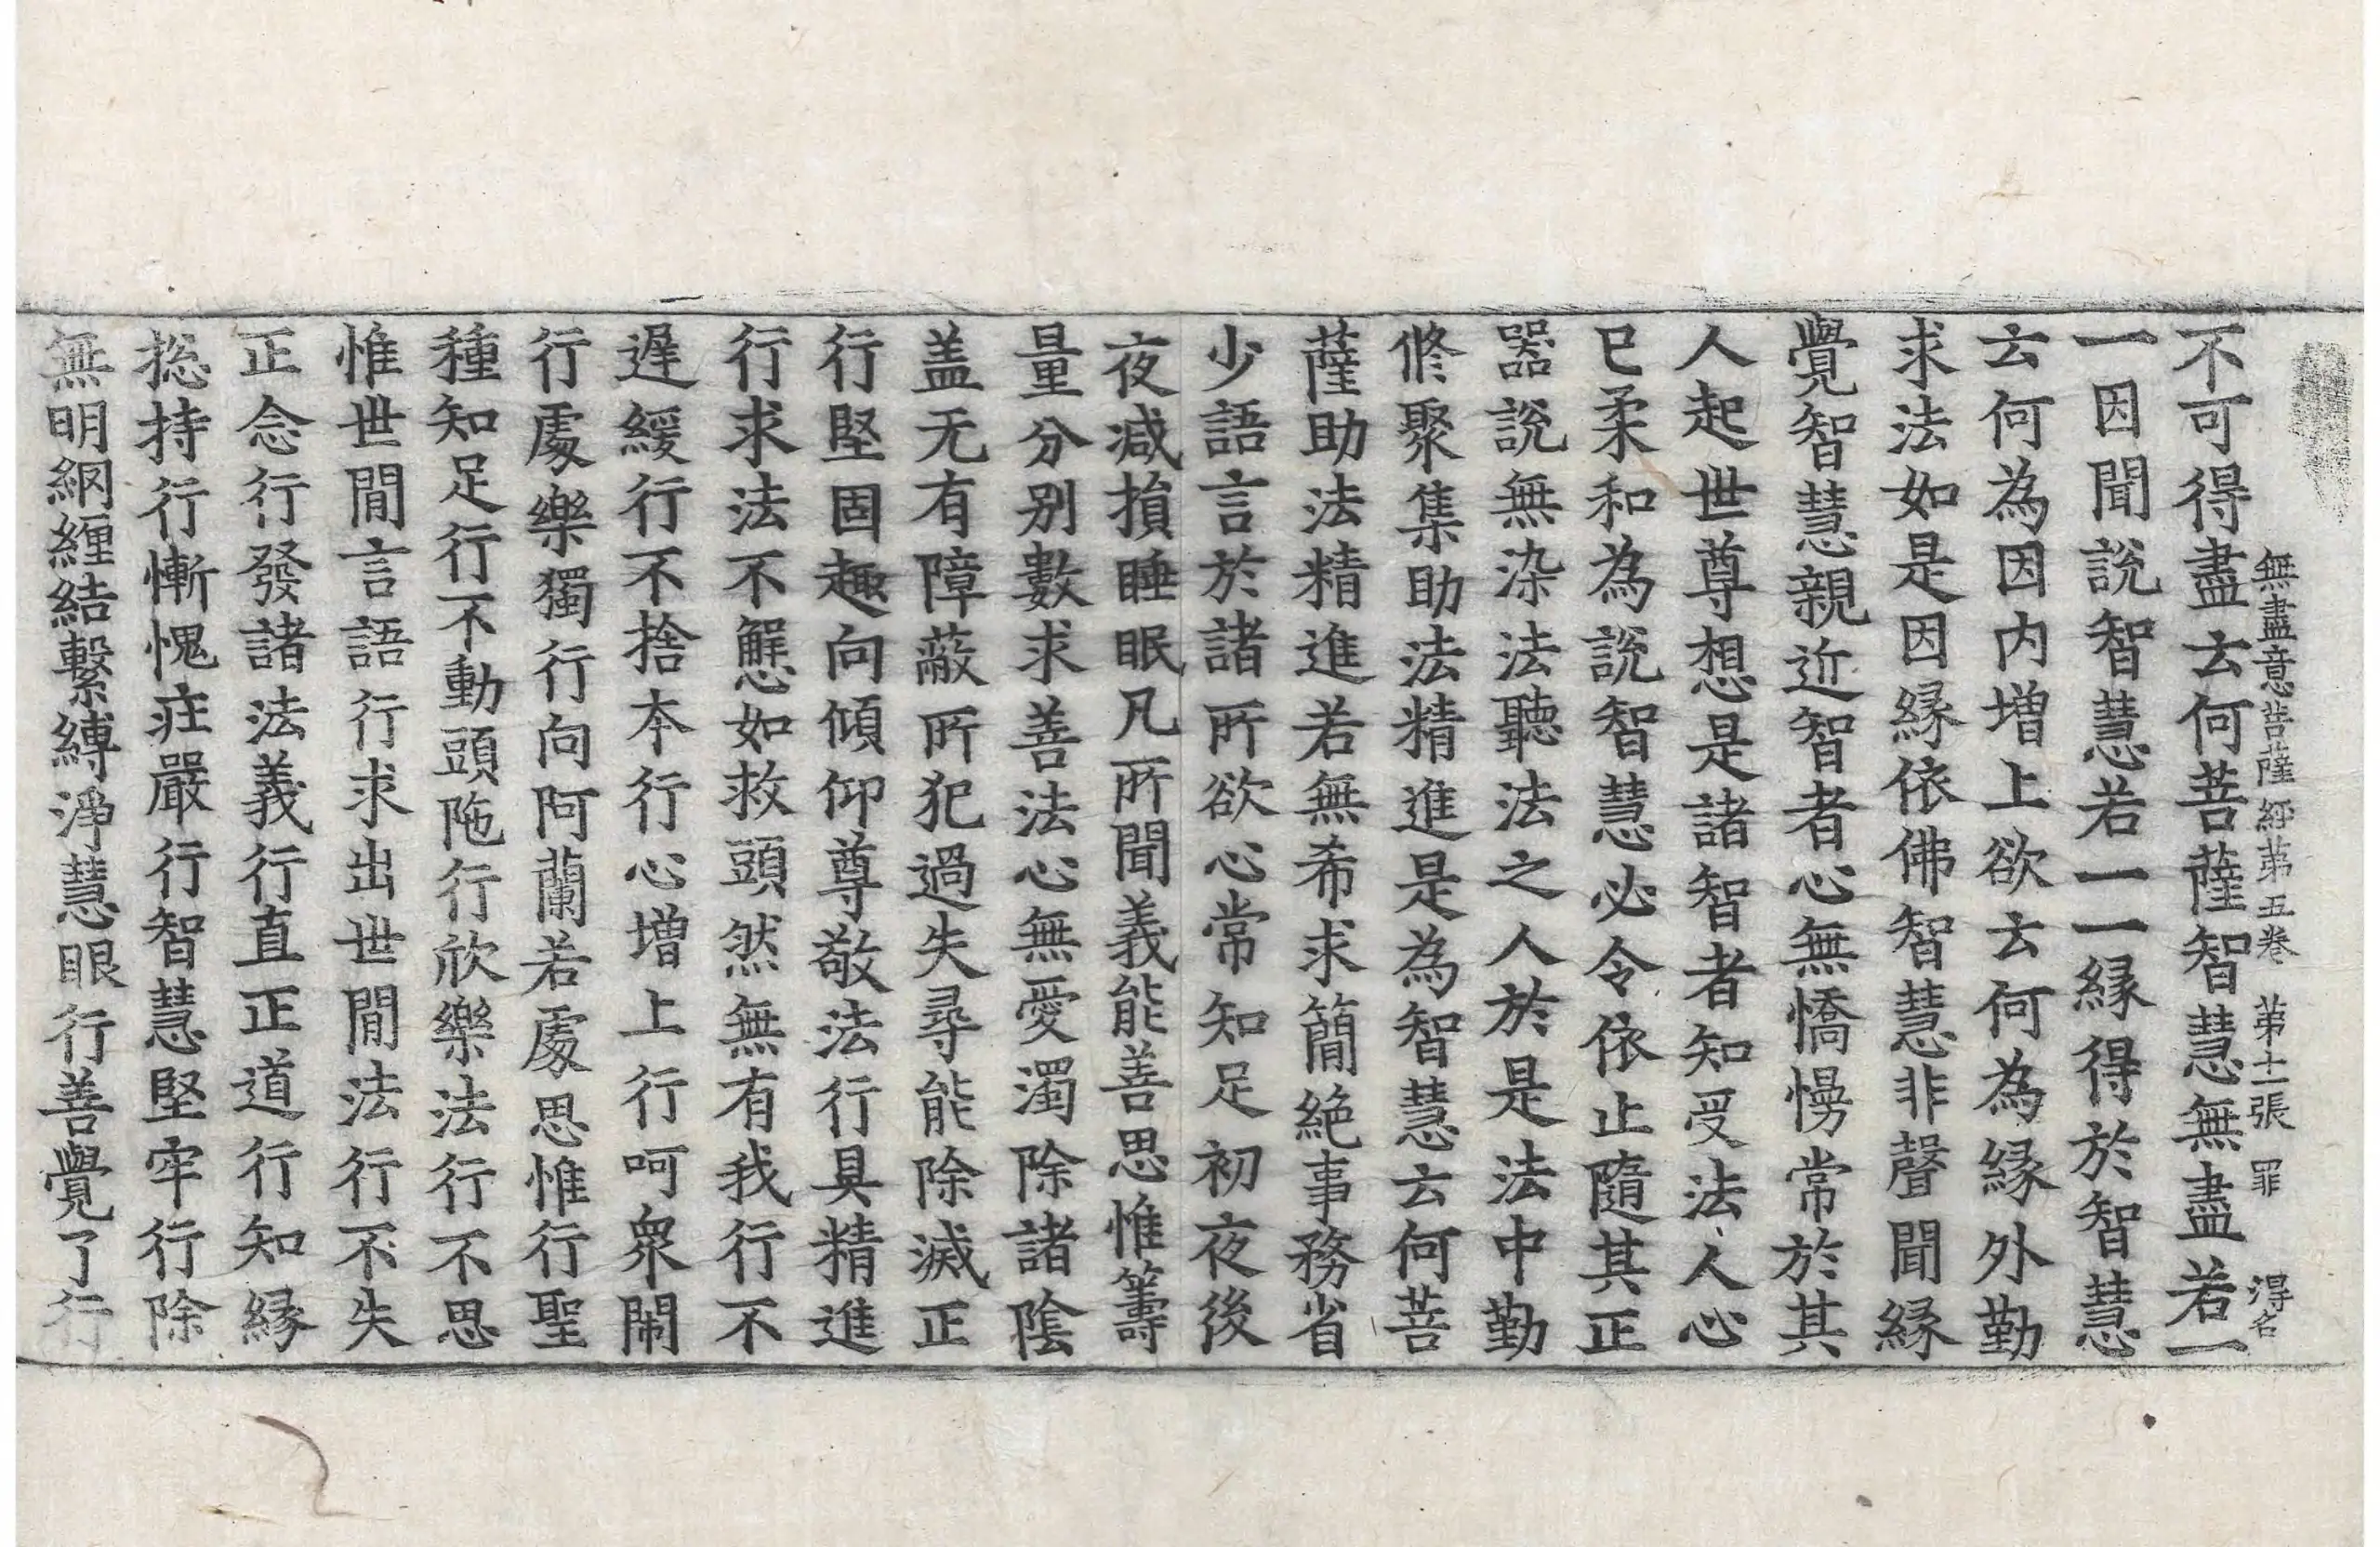 無盡意菩薩經第五卷 第十一張 罪 得名
不可得盡云何菩薩智慧無盡若一
一因聞說智慧若一一緣得於智慧
云何為因内增上欲云何為緣外勤
求法如是因緣依佛智慧非聲聞緣
覺智慧親近智者心無憍慢常於其
人起世尊想是諸智者知受法人心
已柔和為說智慧必令依止隨其正
器說無染法聽法之人於是法中勤
修聚集助法精進是為智慧云何菩
薩助法精進若無希求簡絕事務省
少語言於諸所欲心常知足初夜後
夜减損睡眠凡所聞義能善思惟籌
量分別數求善法心無愛濁除諸陰
盖无有障蔽所犯過失尋能除滅正
行堅固趣向傾仰尊敬法行具精進
行求法不懈如救頭然無有我行不
遲緩行不捨本行心增上行呵衆閙
行處樂獨行向阿蘭若處思惟行聖
種知足行不動頭陁行欣樂法行不思
惟世閒言語行求出世閒法行不失
正念行發諸法義行直正道行知緣
捴持行慚愧莊嚴行智慧堅牢行除
無明網纒結繫縛淨慧眼行善覺了行